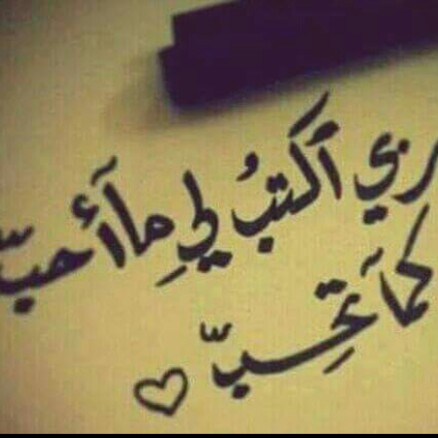 ربي ٱكتبُ لي مآ أحبّ
كمآ تحِبّ ♡